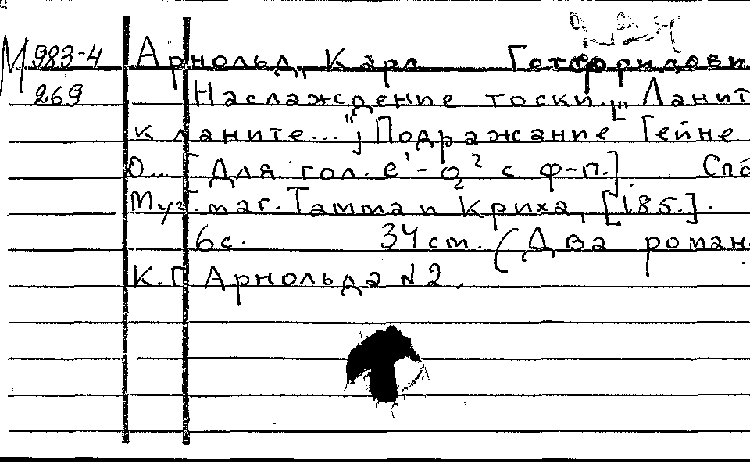 М 983-4 Арнольд, Карл Готфридови
269 Наслаждение тоски. ["Ланит
к ланите..."] Подражание Гейне
О... [Для гол. e¹-g² с ф-п.]. Спб
Муз. маг. Тамма и Криха, [185.].
6 с. 34 см. (Два роман
К. Г. Арнольда № 2.